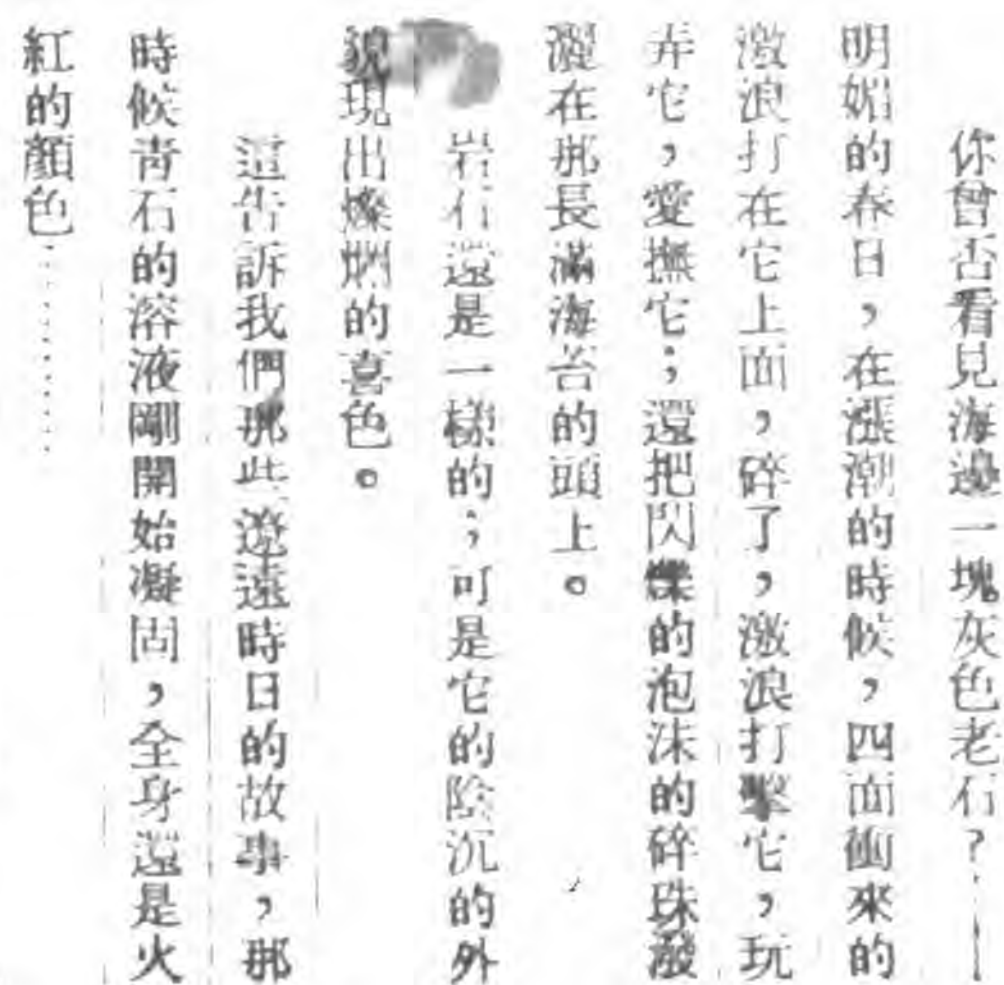 你曾否看見海邊一塊灰色老石?——
明媚的春日,在漲潮的時候,四面衝來的
激浪打在它上面,碎了,激浪打擊它,玩
弄它,愛撫它;還把閃爍的泡沫的碎珠潑
灑在那長滿海苔的頭上。
岩石還是一樣的;可是它的陰沉的外
貌現出燦爛的喜色。
這告訴我們那些遼遠時日的故事,那
時候青石的溶液剛開始凝固,全身還是火
紅的顏色…………